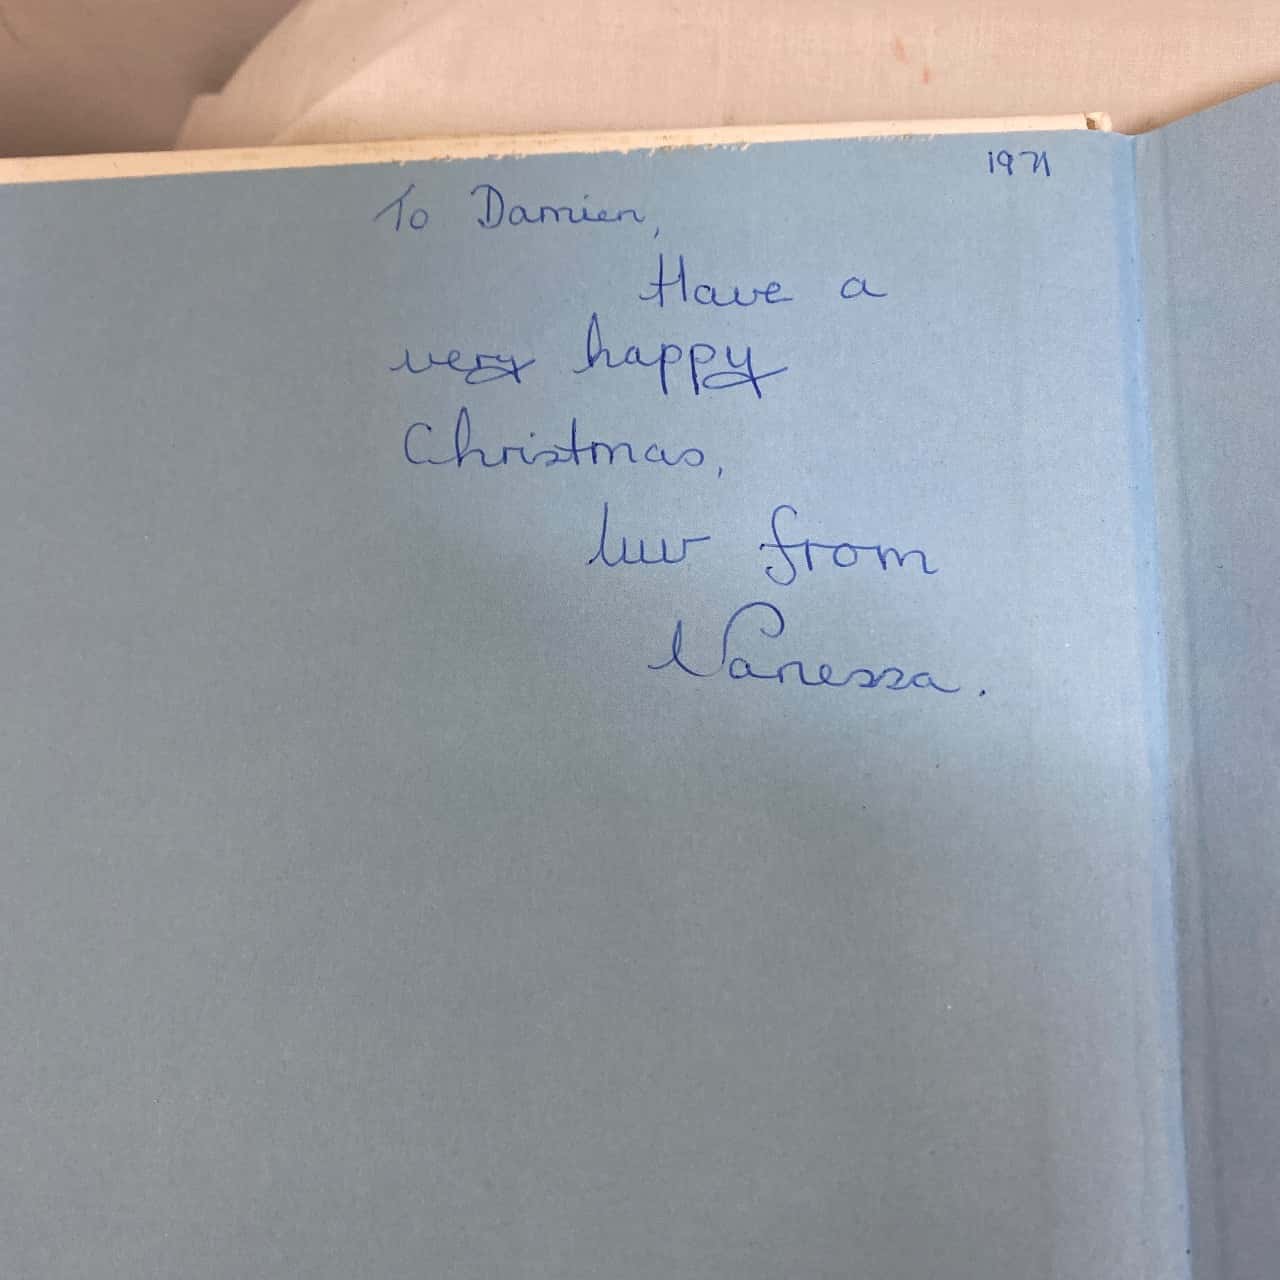 1971
To Damien,
Have a
very happy
Christmas,
luv from
Vanessa.